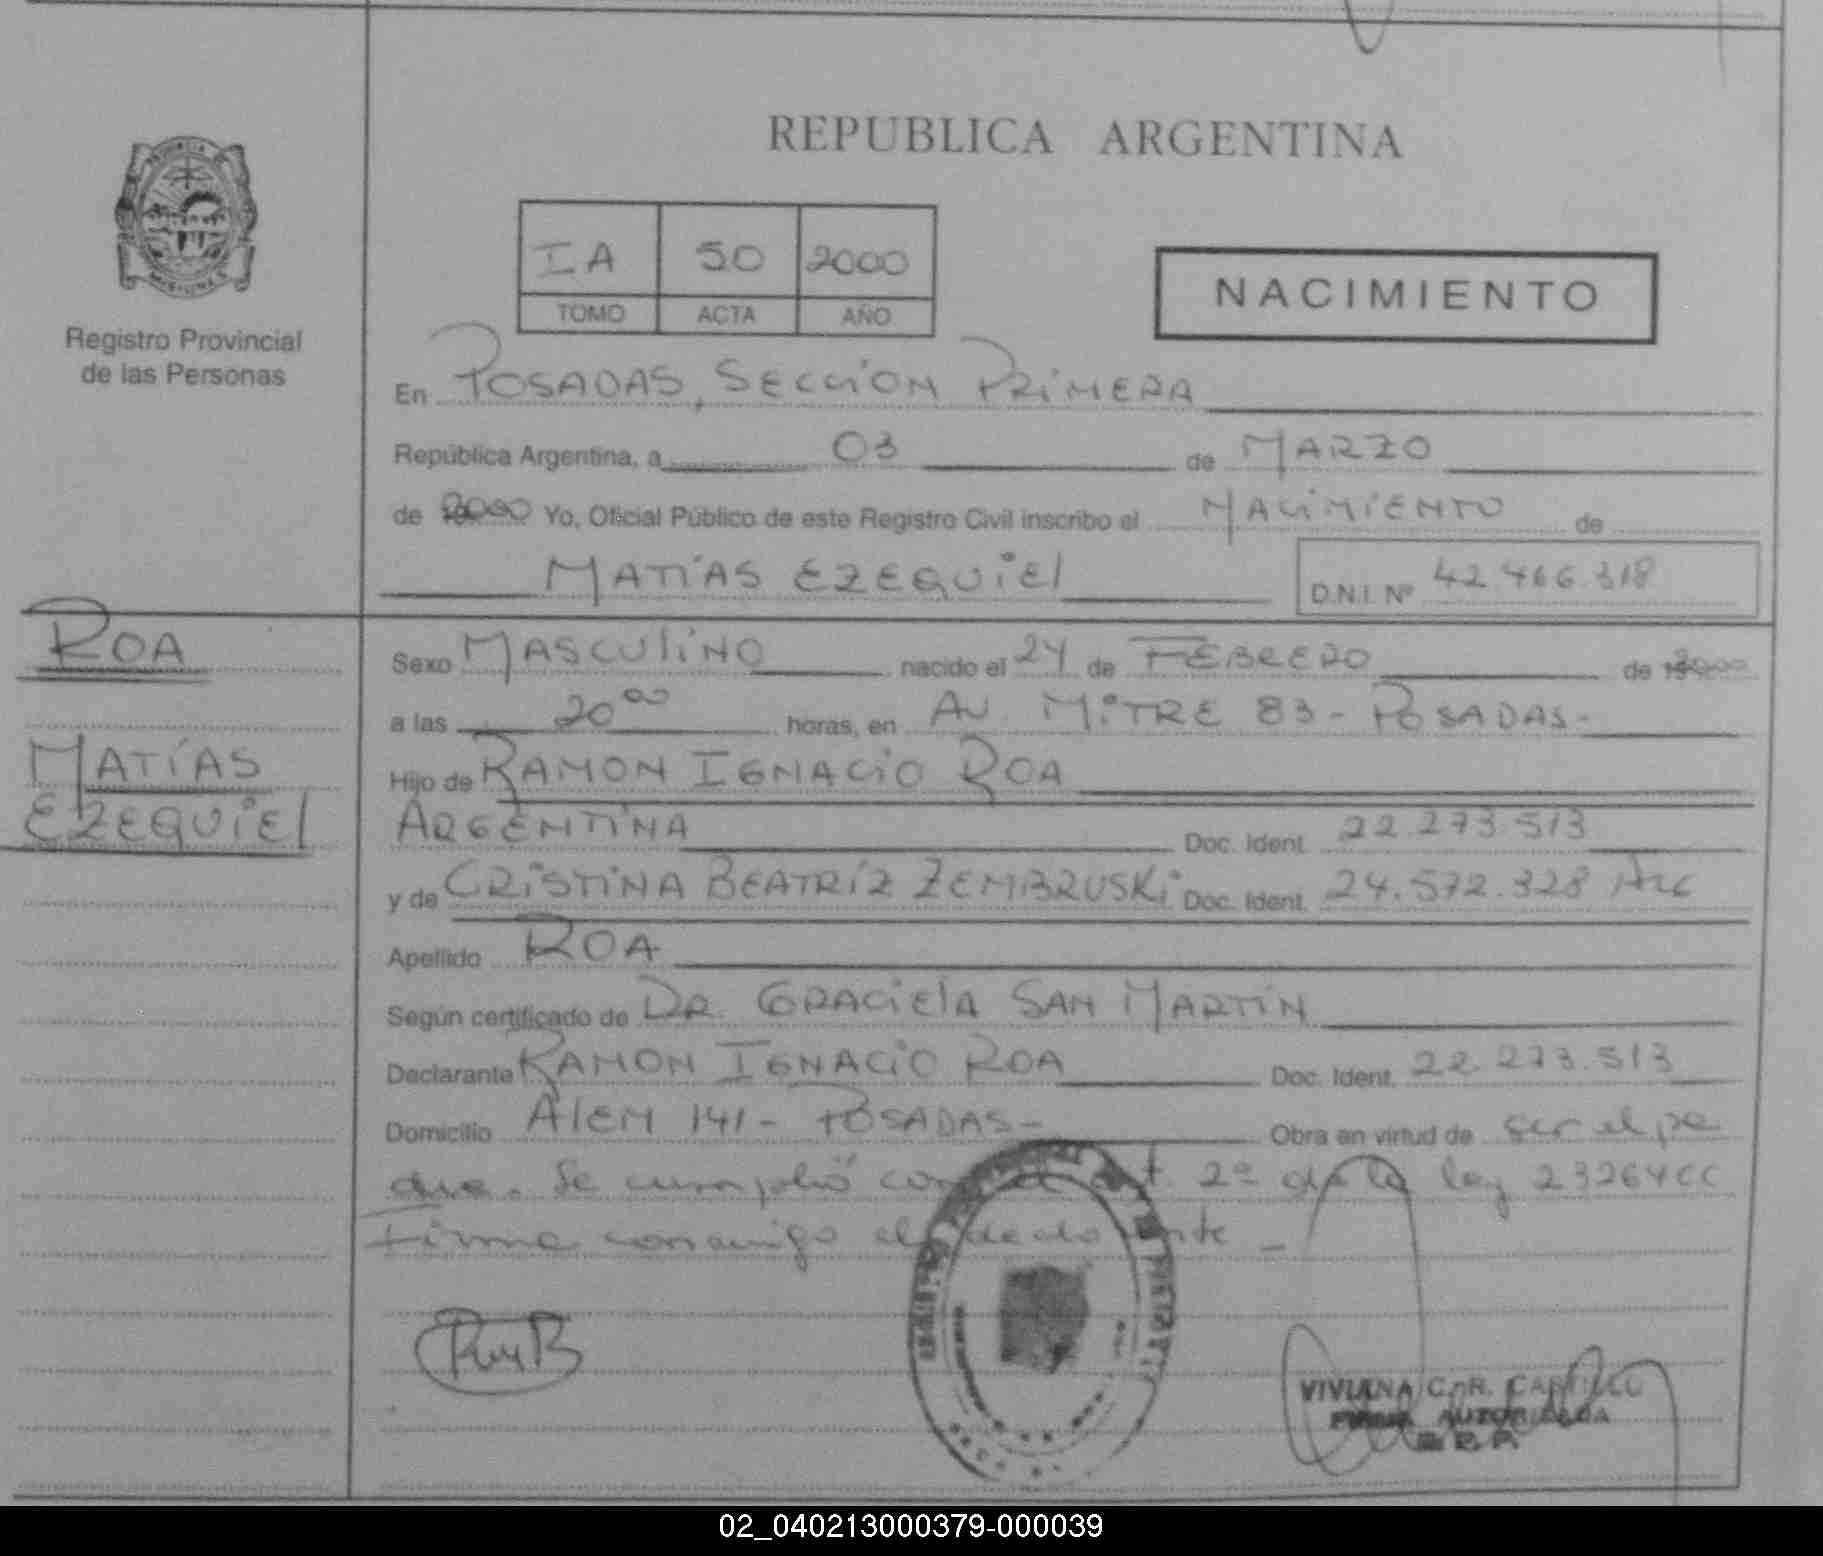 REPUBLICA ARGENTINA
PROVINCIA DE
MISIONES
Registro Provincial
de las Personas
IA 50 2000
TOMO ACTA AÑO
NACIMIENTO
En POSADAS, SECCION PRIMERA
República Argentina, a 03 de MARZO
de 2000 Yo, Oficial Público de este Registro Civil inscribo el NACIMIENTO de
MATÍAS EZEQUIEL D.N.I. Nº 42.466.318
ROA
MATÍAS
EZEQUIEL
Sexo MASCULINO nacido el 24 de FEBRERO de 2000
a las 20 00 horas, en AV MITRE 83 - POSADAS -
Hijo de RAMON IGNACIO ROA
ARGENTINA Doc. Ident. 22.273.513
y de CRISTINA BEATRÍZ ZEMBRUSKI Doc. Ident. 24.572.328 ARG
Apellido ROA
Según certificado de DR. GRACIELA SAN MARTÍN
Declarante RAMON IGNACIO ROA Doc. Ident. 22.273.513
Domicilio ALEM 141 - POSADAS - Obra en virtud de ser el pa
dre. Se cumplió con el art. 2º de la ley 23264 CC
Firma conmigo el declarante -
VIVIANA C. R. CASTILLO
FIRMA AUTORIZADA
R.P.P.
02_040213000379-000039